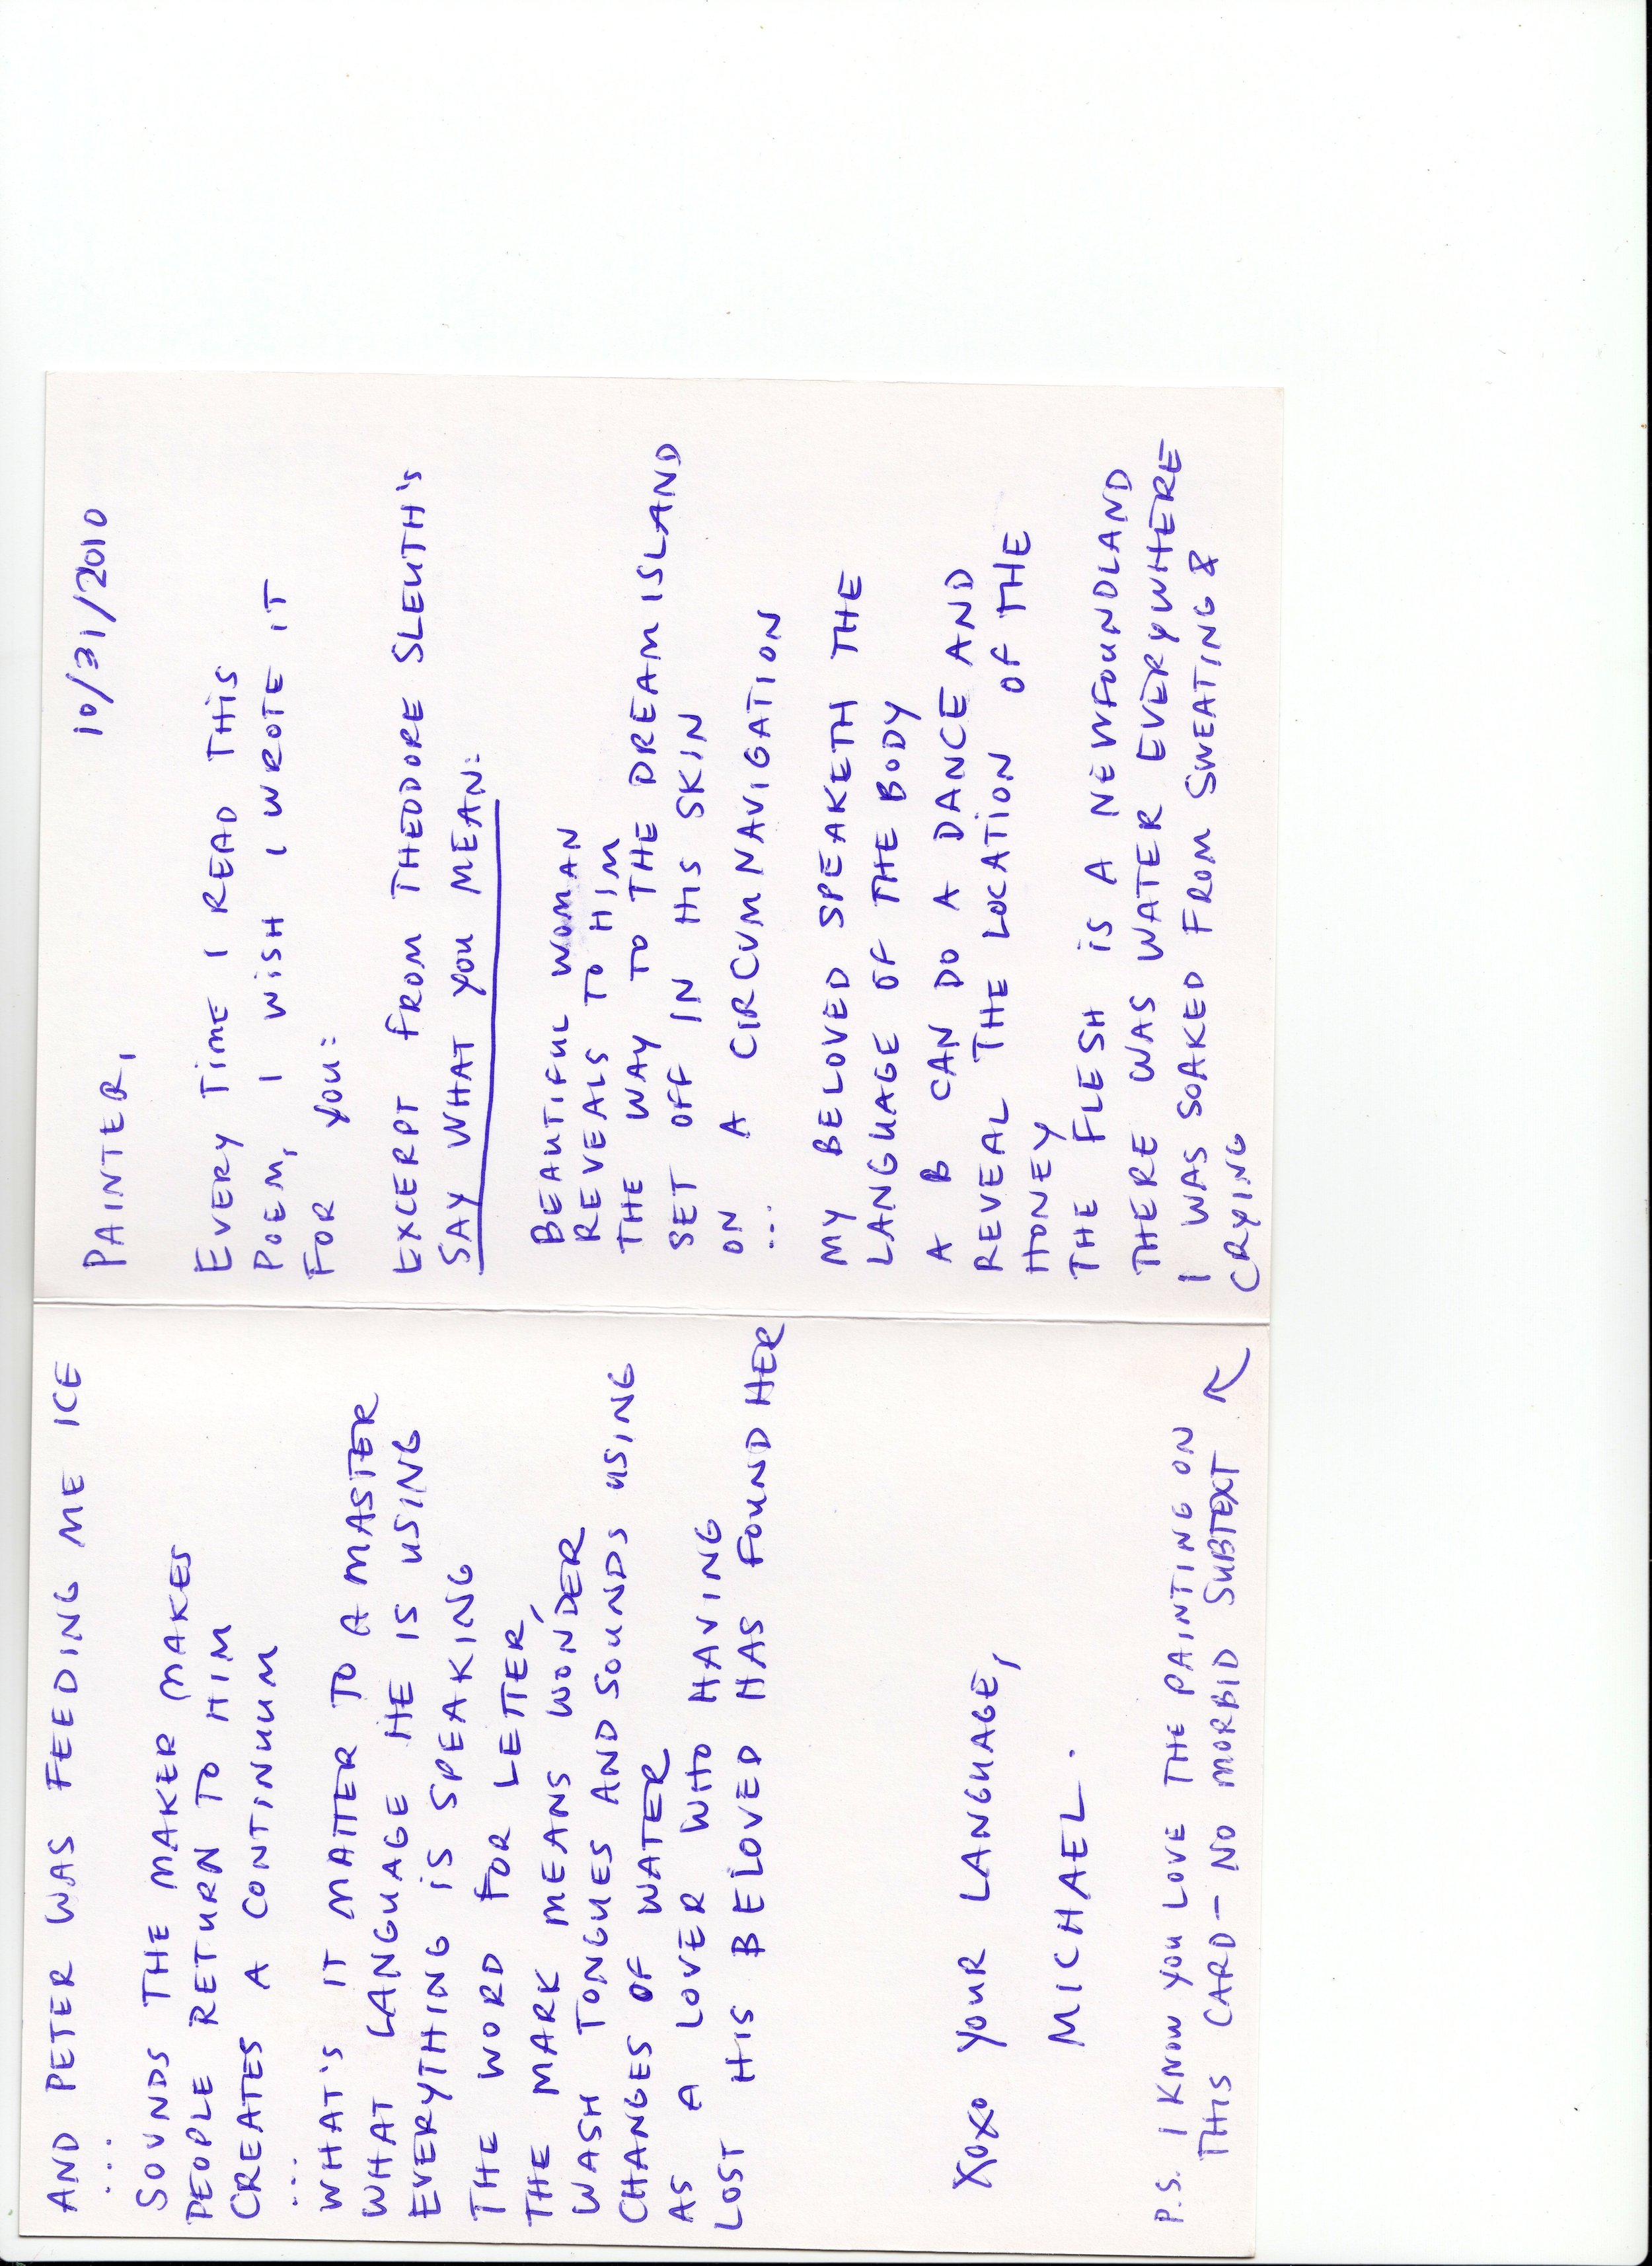 PAINTER, 10/31/2010
EVERY TIME I READ THIS
POEM, I WISH I WROTE IT
FOR YOU:
EXCERPT FROM THEODORE SLEUTH'S
SAY WHAT YOU MEAN:
BEAUTIFUL WOMAN
REVEALS TO HIM
THE WAY TO THE DREAM ISLAND
SET OFF IN HIS SKIN
ON A CIRCUMNAVIGATION
...
MY BELOVED SPEAKETH THE
LANGUAGE OF THE BODY
A B CAN DO A DANCE AND
REVEAL THE LOCATION OF THE
HONEY
THE FLESH IS A NEWFOUNDLAND
THERE WAS WATER EVERYWHERE
I WAS SOAKED FROM SWEATING &
CRYING
AND PETER WAS FEEDING ME ICE
...
SOUNDS THE MAKER MAKES
PEOPLE RETURN TO HIM
CREATES A CONTINUUM
...
WHAT'S IT MATTER TO A MASTER
WHAT LANGUAGE HE IS USING
EVERYTHING IS SPEAKING
THE WORD FOR LETTER,
THE MARK MEANS WONDER,
WASH TONGUES AND SOUNDS USING
CHANGES OF WATER
AS A LOVER WHO HAVING
LOST HIS BELOVED HAS FOUND HER
XOXO YOUR LANGUAGE,
MICHAEL.
P.S. I KNOW YOU LOVE THE PAINTING ON
THIS CARD - NO MORBID SUBTEXT